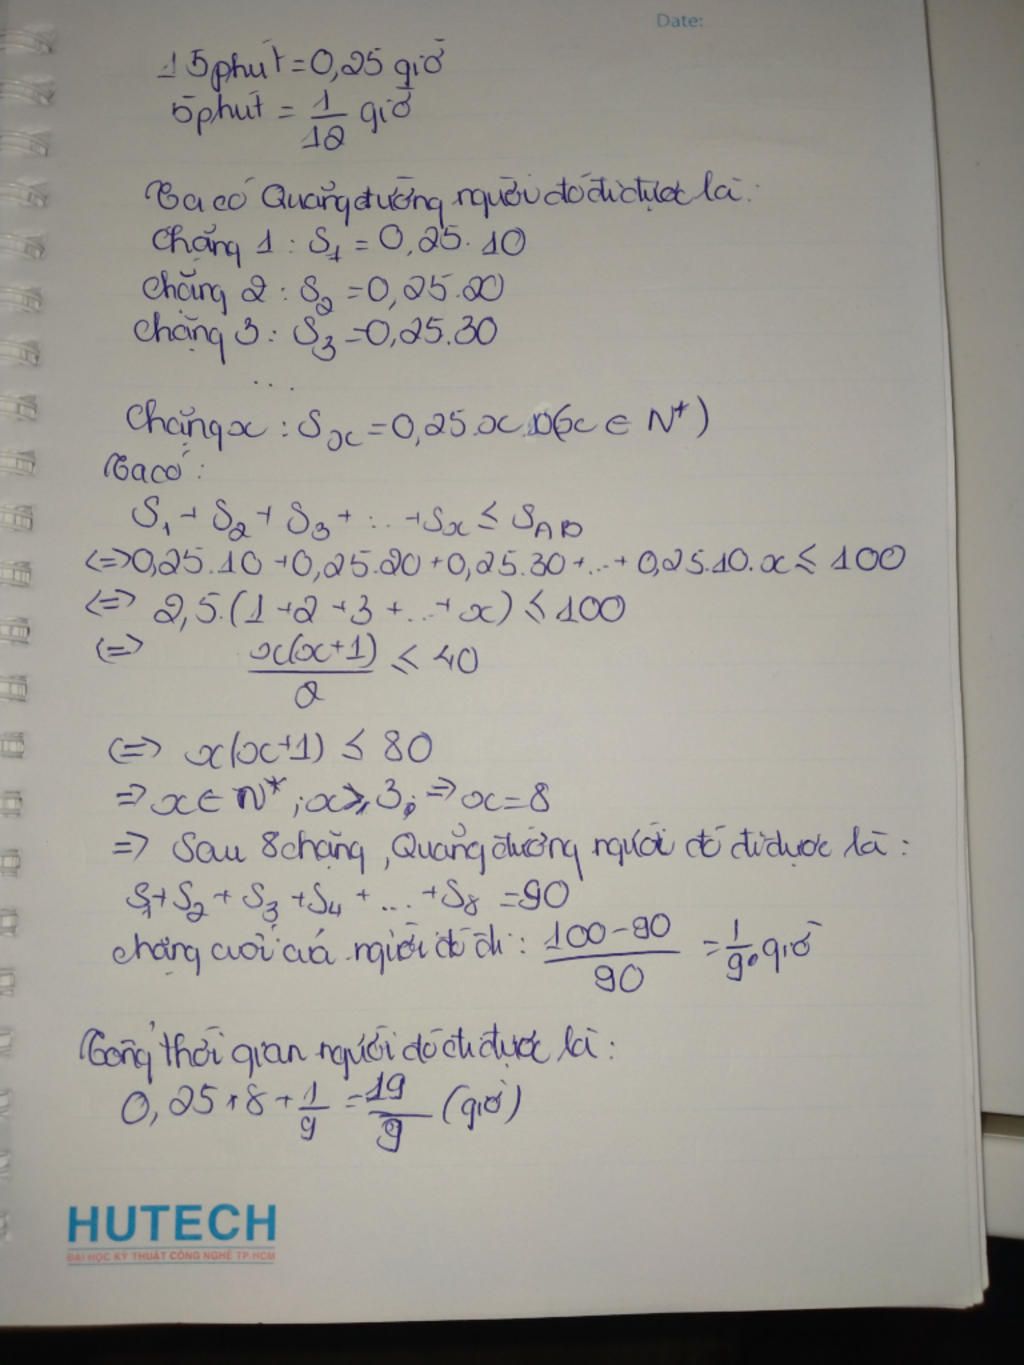 Date:
15 phút = 0,25 giờ
5 phút = 1/12 giờ
Ta có Quãng đường người đó đi được là:
Chặng 1 : S₁ = 0,25.10
Chặng 2 : S₂ = 0,25.20
Chặng 3 : S₃ = 0,25.30
...
Chặng x : Sₓ = 0,25.x.10 (x ∈ N*)
Ta có :
S₁ + S₂ + S₃ + ... + Sₓ ≤ S_AB
<=> 0,25.10 + 0,25.20 + 0,25.30 + ... + 0,25.10.x ≤ 100
<=> 2,5.(1 + 2 + 3 + ... + x) ≤ 100
<=> x(x+1)/2 ≤ 40
<=> x(x+1) ≤ 80
=> x ∈ N* ; x ≥ 3, => x = 8
=> Sau 8 chặng, Quãng đường người đó đi được là :
S₁ + S₂ + S₃ + S₄ + ... + S₈ = 90
chặng cuối cùng người đó đi : (100-90)/90 = 1/9 giờ
Tổng thời gian người đó đi được là :
0,25 * 8 + 1/9 = 19/9 (giờ)
HUTECH
ĐẠI HỌC KỸ THUẬT CÔNG NGHỆ TP.HCM